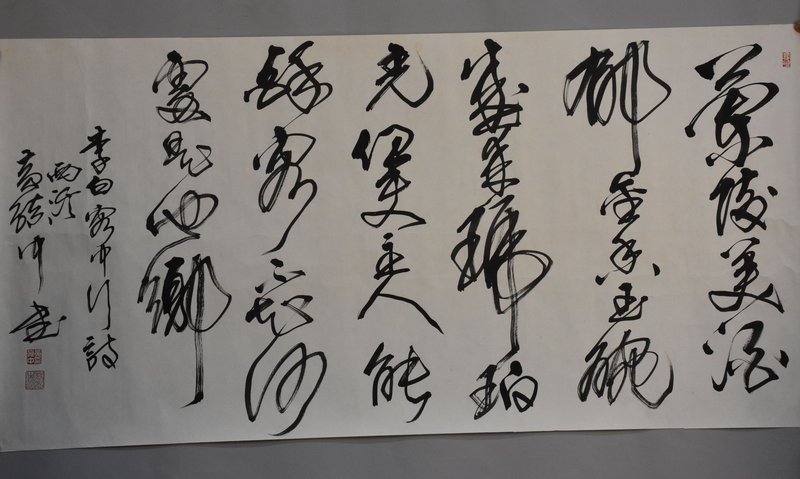 蘭陵美酒
郁金香玉碗
盛来琥珀
光但使主人能
醉客不知何
處是他鄉
李白客中行詩
書